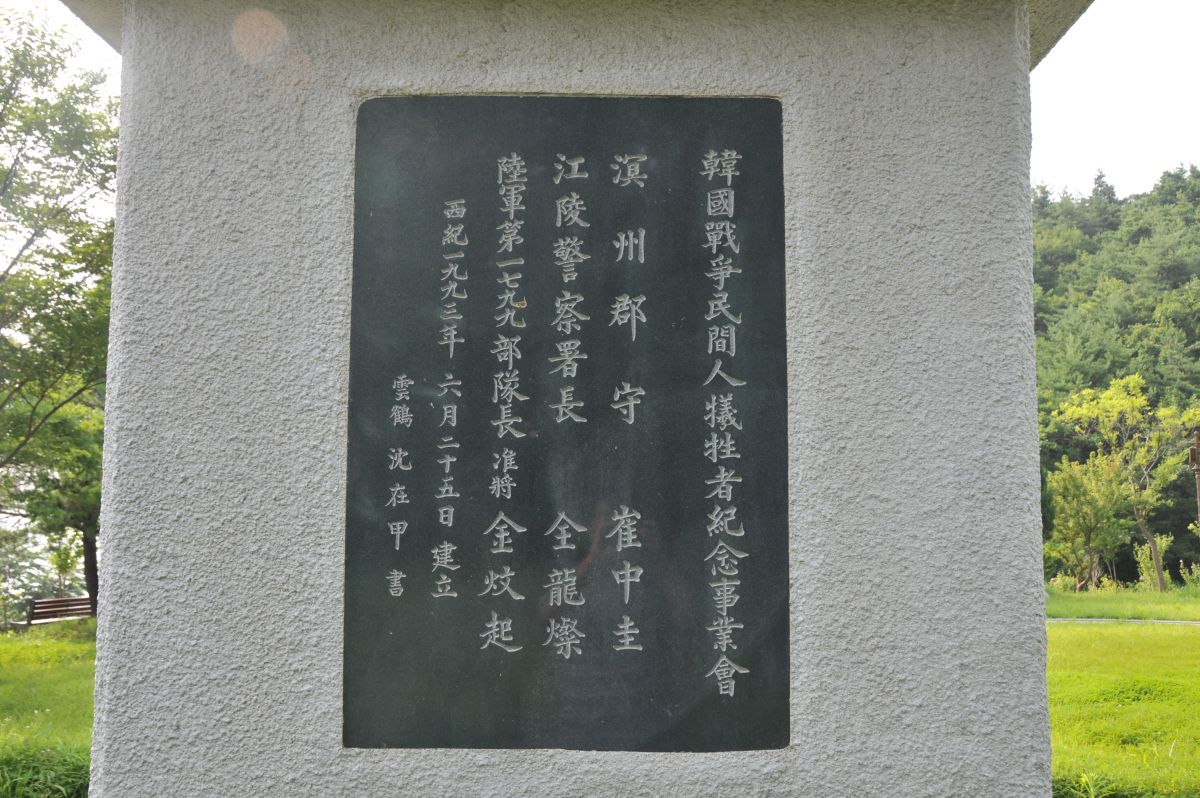 韓國戰爭民間人犧牲者紀念事業會
溟州郡守 崔中圭
江陵警察署長 全龍燦
陸軍第一七九九部隊長 准將 金炆起
西紀一九九三年 六月二十五日 建立
雲鶴 沈在甲 書